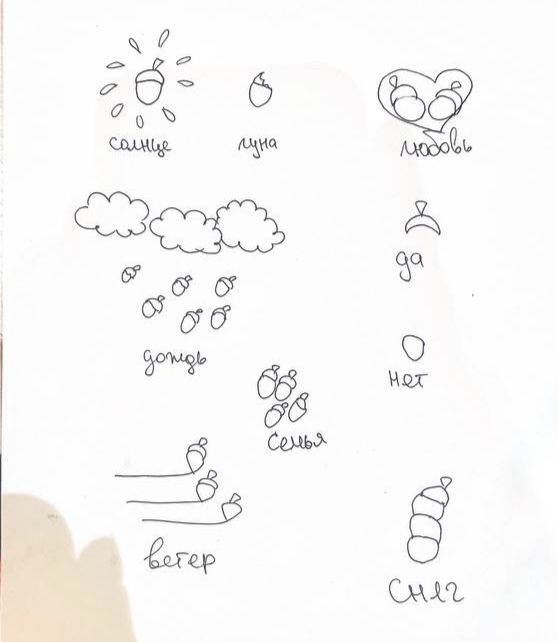 солнце
луна
любовь
да
дождь
нет
семья
ветер
снег